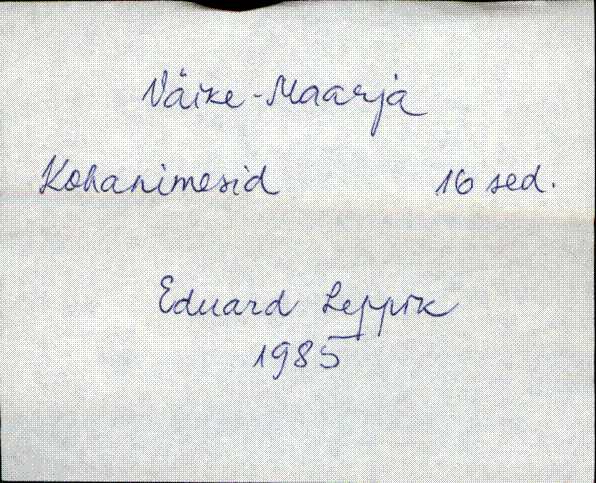 Väike-Maarja
Kohanimesid 16 sed.
Eduard Leppik
1985